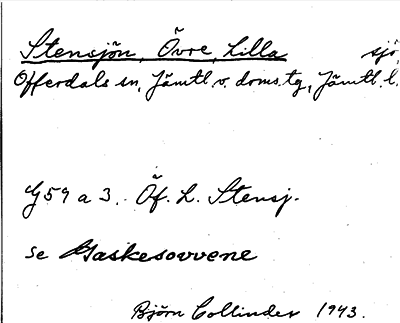 Stensjön, Övre, Lilla sjö,
Offerdals sn, Jämtl. v. doms.tg, Jämtl. l.
G 59 a 3. Öf. L. Stensj.
se Gaskesovvene
Björn Collinder 1943.